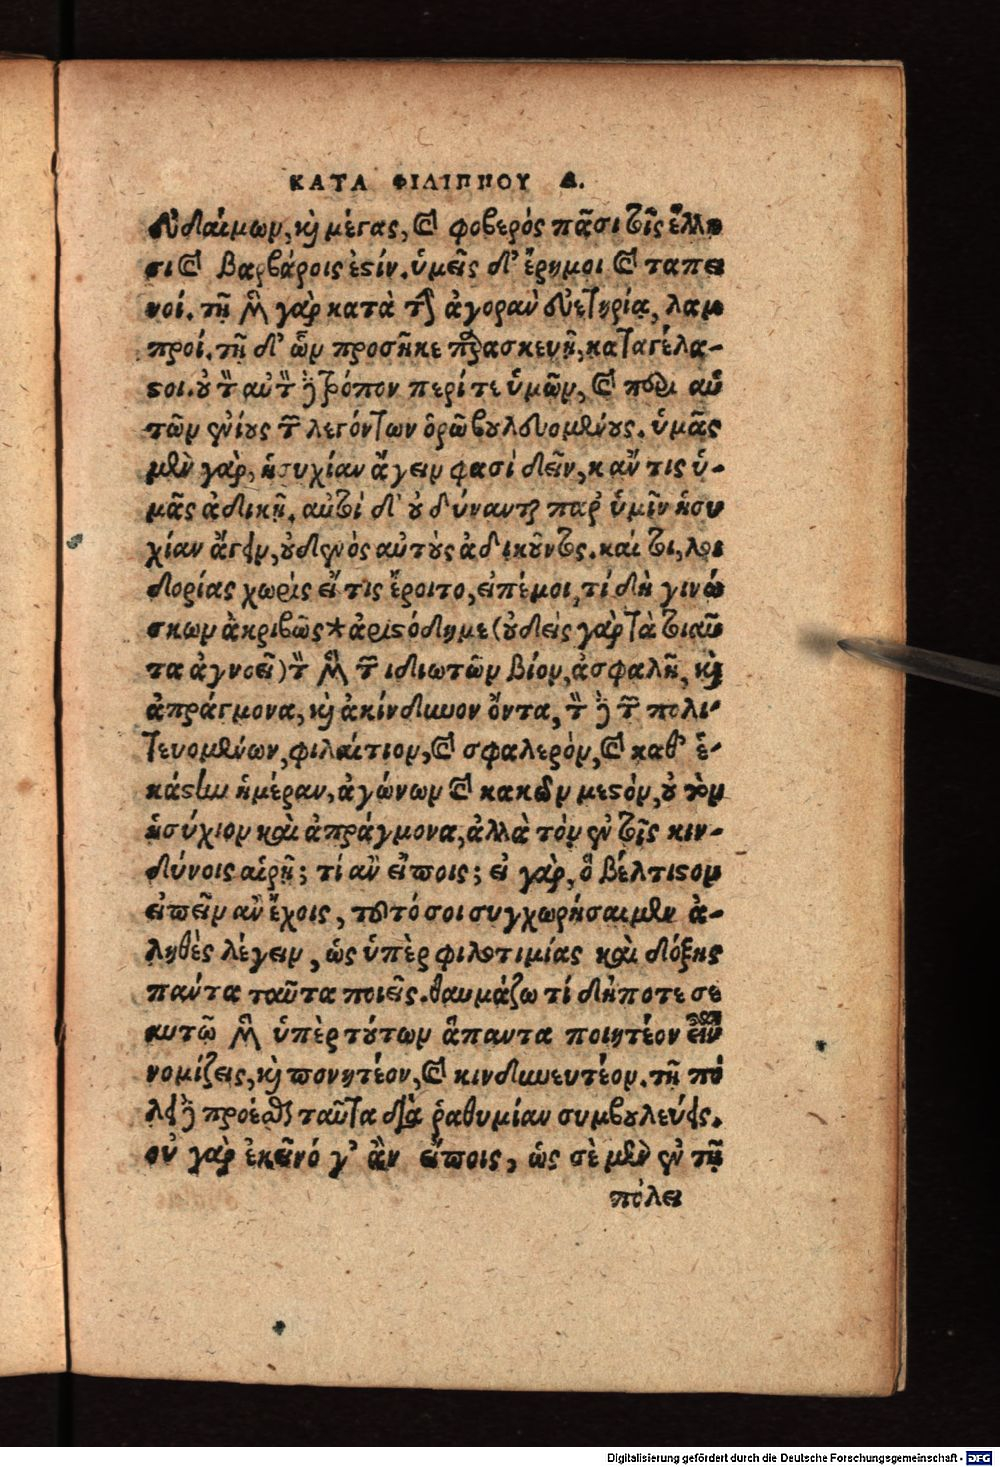 ΚΑΤΑ ΦΙΛΙΠΠΟΥ Δ.
εὐδαίμων, καὶ μέγας, καὶ φοβερὸς πᾶσι τοῖς ἕλλη
σι καὶ βαρβάροις ἐστίν. ὑμεῖς δ' ἔρημοι καὶ ταπει
νοί. τῇ μὲν γὰρ κατὰ τὴν ἀγορὰν εὐετηρίᾳ, λαμ
προί. τῇ δ' ὧν προσῆκε παρασκευῇ, καταγέλα-
στοι. οὐ τὸν αὐτὸν δὲ τρόπον περί τε ὑμῶν, καὶ περὶ αὑ
τῶν ἐνίους τῶν λεγόντων ὁρῶ βουλευομένους. ὑμᾶς
μὲν γὰρ, ἡσυχίαν ἄγειν φασὶ δεῖν, κἄν τις ὑ-
μᾶς ἀδικῇ. αὐτοὶ δ' οὐ δύνανται παρ' ὑμῖν ἡσυ
χίαν ἄγειν, οὐδενὸς αὐτοὺς ἀδικοῦντος. καί τοι, λοι
δορίας χωρὶς εἴ τις ἔροιτο, εἰπέ μοι, τί δὴ γινώ
σκων ἀκριβῶς * ἀριστόδημε (οὐδεὶς γὰρ τὰ τοιαῦ
τα ἀγνοεῖ) τὸν μὲν τῶν ἰδιωτῶν βίον, ἀσφαλῆ, καὶ
ἀπράγμονα, καὶ ἀκίνδυνον ὄντα, τὸν δὲ τῶν πολι-
τευομένων, φιλαίτιον, καὶ σφαλερὸν, καὶ καθ' ἑ-
κάστην ἡμέραν, ἀγώνων καὶ κακῶν μεστὸν, οὐ τὸν
ἡσύχιον καὶ ἀπράγμονα, ἀλλὰ τὸν ἐν τοῖς κιν-
δύνοις αἱρῇ; τί ἂν εἴποις; εἰ γὰρ, ὃ βέλτιστον
εἰπεῖν ἂν ἔχοις, τοῦτό σοι συγχωρήσαιμεν ἀ-
ληθὲς λέγειν, ὡς ὑπὲρ φιλοτιμίας καὶ δόξης
πάντα ταῦτα ποιεῖς. θαυμάζω τί δήποτε σε
αυτῷ μὲν ὑπὲρ τούτων ἅπαντα ποιητέον εἶναι
νομίζεις, καὶ πονητέον, καὶ κινδυνευτέον. τῇ πό
λει δὲ προέσθαι ταῦτα διὰ ῥαθυμίαν συμβουλεύεις.
οὐ γὰρ ἐκεῖνό γ' ἂν εἴποις, ὡς σὲ μὲν ἐν τῇ
πόλει
Digitalisierung gefördert durch die Deutsche Forschungsgemeinschaft - DFG